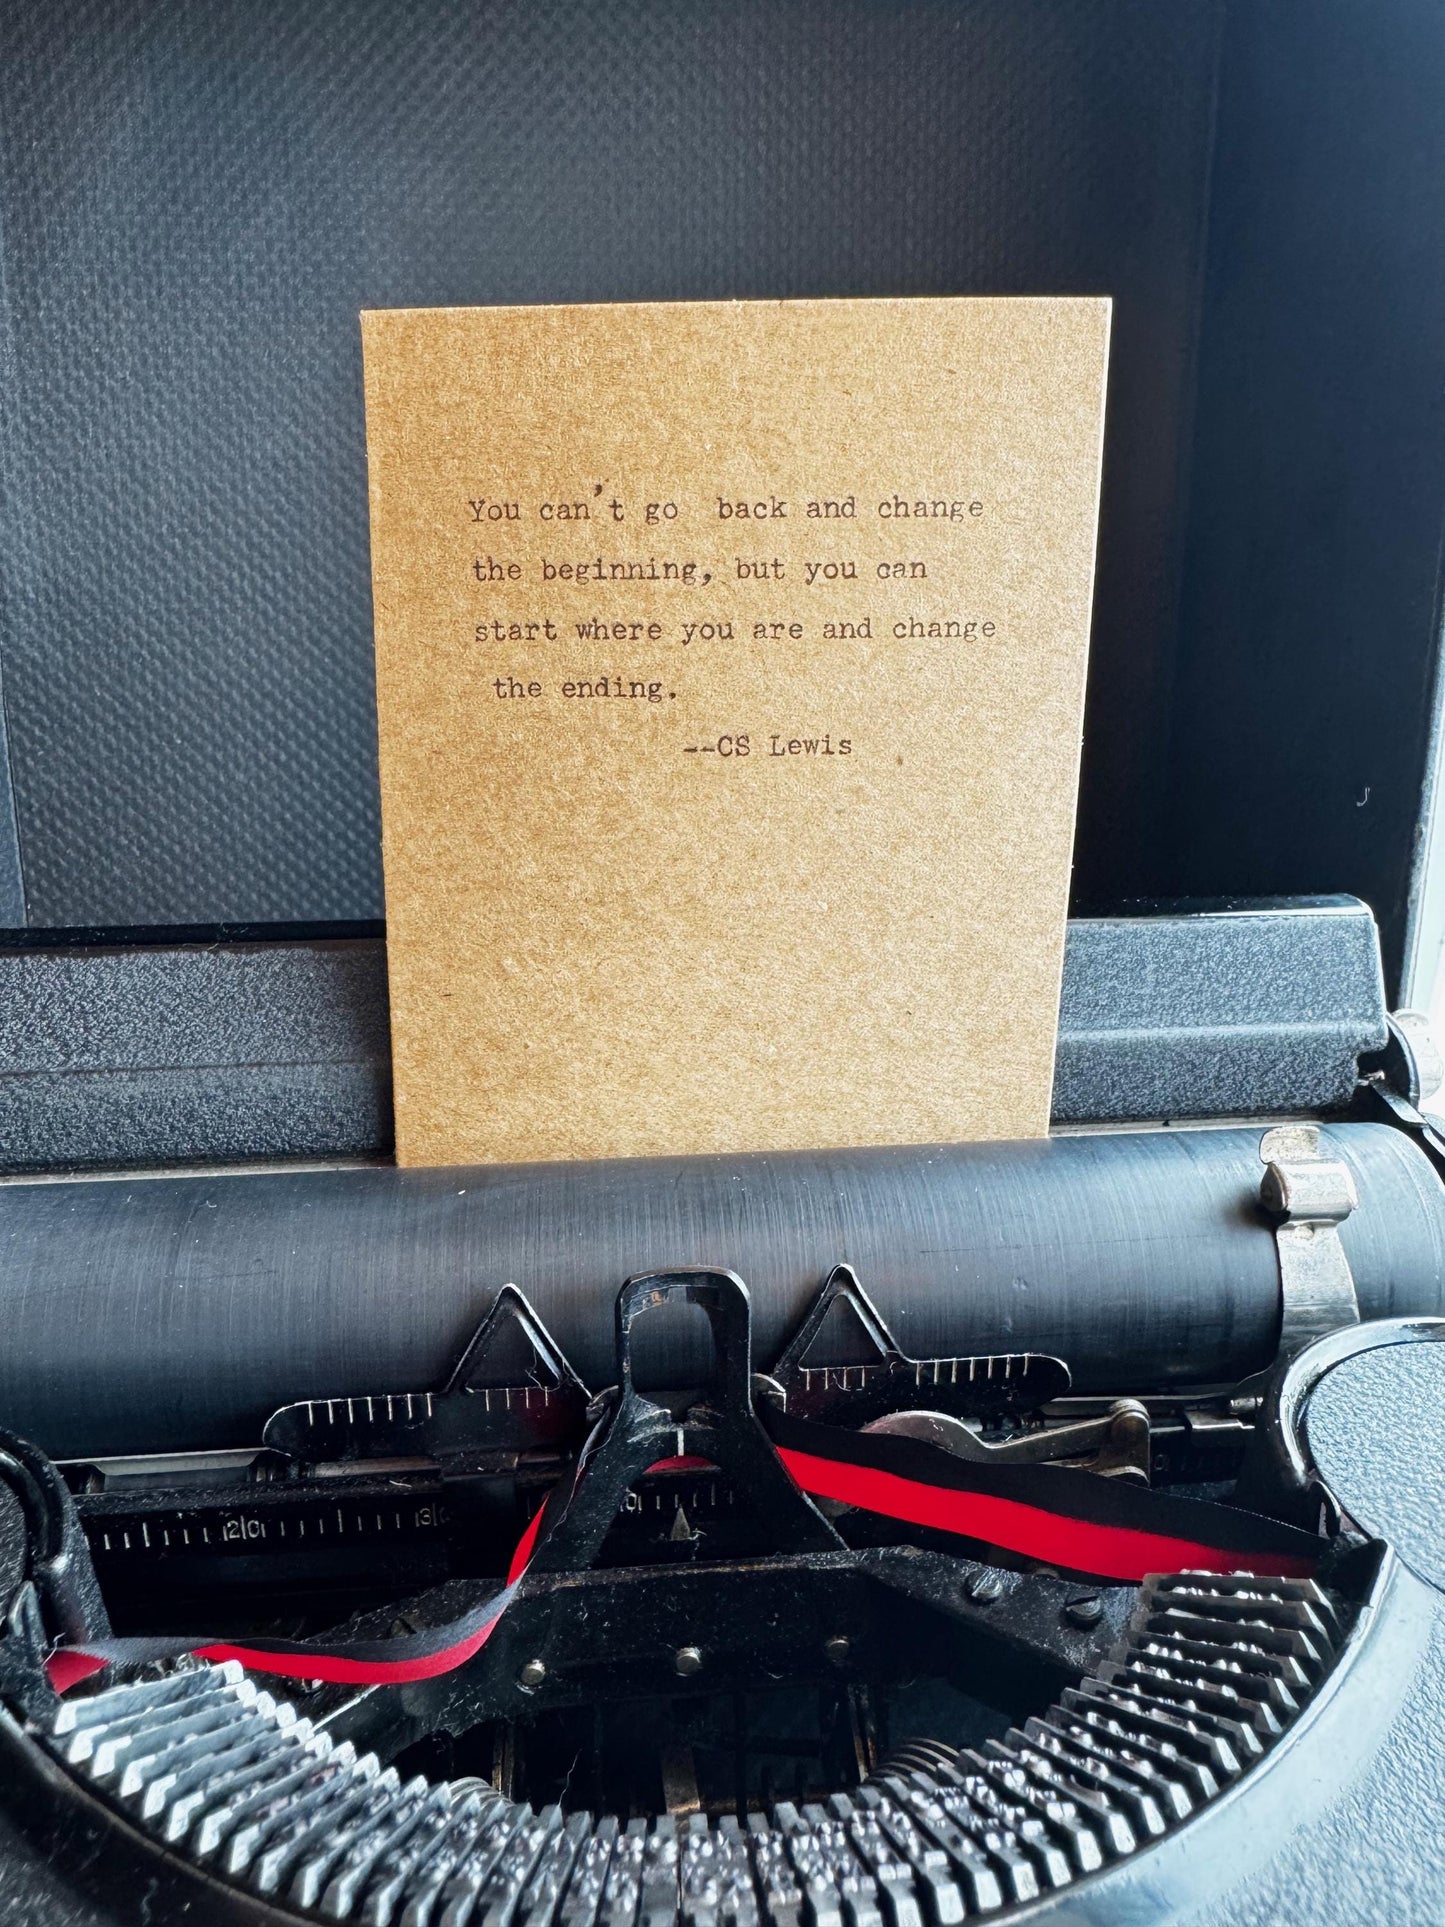 You can't go  back and change
the beginning, but you can
start where you are and change
the ending.
--CS Lewis
20